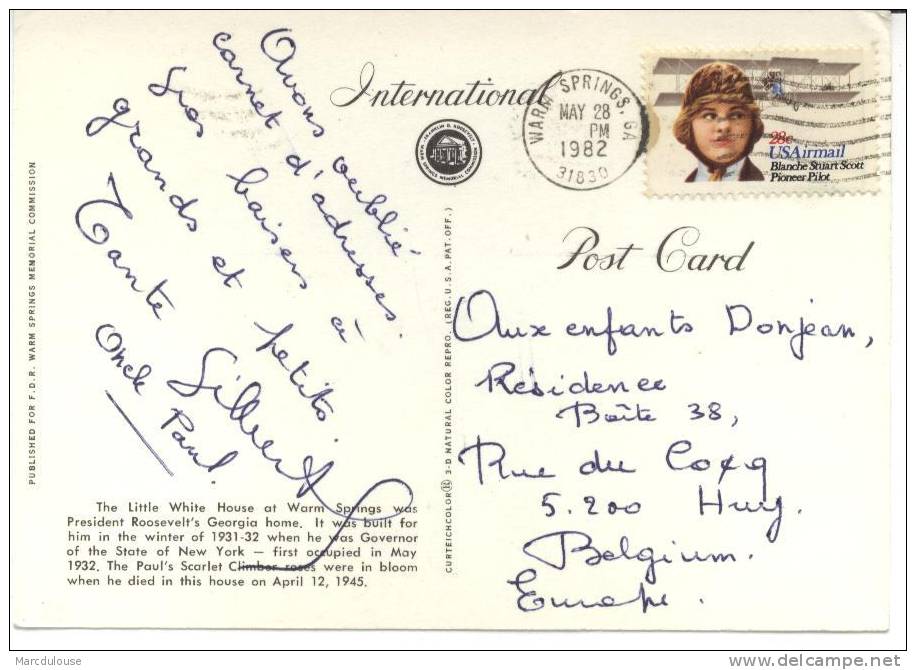 Avons oublié
carnet d'adresses.
Gros baisers à
grands et petits.
Tante Gilberte
Oncle Paul.
International
FRANKLIN D. ROOSEVELT
WARM SPRINGS MEMORIAL COMMISSION
WARM SPRINGS, GA
MAY 28
PM
1982
31830
28c
USAirmail
Blanche Stuart Scott
Pioneer Pilot
Post Card
Aux enfants Donjean,
Résidence
Boîte 38,
Rue du Coq
5.200 Huy.
Belgium.
Europe.
PUBLISHED FOR F.D.R. WARM SPRINGS MEMORIAL COMMISSION
CURTEICHCOLOR® 3-D NATURAL COLOR REPRO. (REG. U.S.A. PAT. OFF.)
The Little White House at Warm Springs was
President Roosevelt's Georgia home. It was built for
him in the winter of 1931-32 when he was Governor
of the State of New York — first occupied in May
1932. The Paul's Scarlet Climber roses were in bloom
when he died in this house on April 12, 1945.
Marcdulouse
delcampe.net